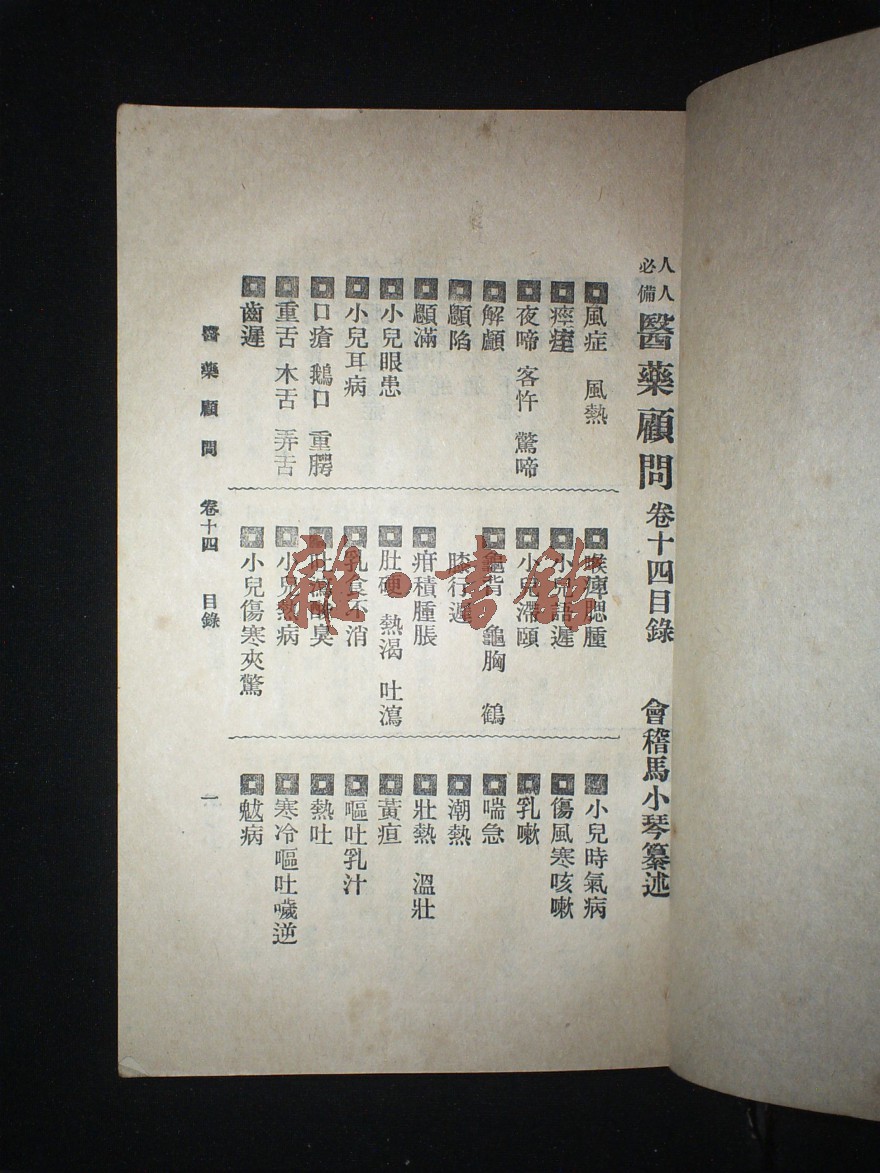 人人必備 醫藥顧問 卷十四目錄 會稽馬小琴纂述
風症 風熱
瘈瘲
夜啼 客忤 驚啼
解顱
顖陷
顖滿
小兒眼患
小兒耳病
口瘡 鵝口 重腭
重舌 木舌 弄舌
齒遲
喉痺腮腫
小兒語遲
小兒滯頤
龜背 龜胸 鶴膝
行遲
疳積腫脹
肚硬 熱渴 吐瀉
乳食不消
吐瀉酸臭
小兒熱病
小兒傷寒夾驚
小兒時氣病
傷風寒咳嗽
乳嗽
喘急
潮熱
壯熱 溫壯
黃疸
嘔吐乳汁
熱吐
寒冷嘔吐噦逆
魃病
醫藥顧問 卷十四 目錄 一
雜·書館